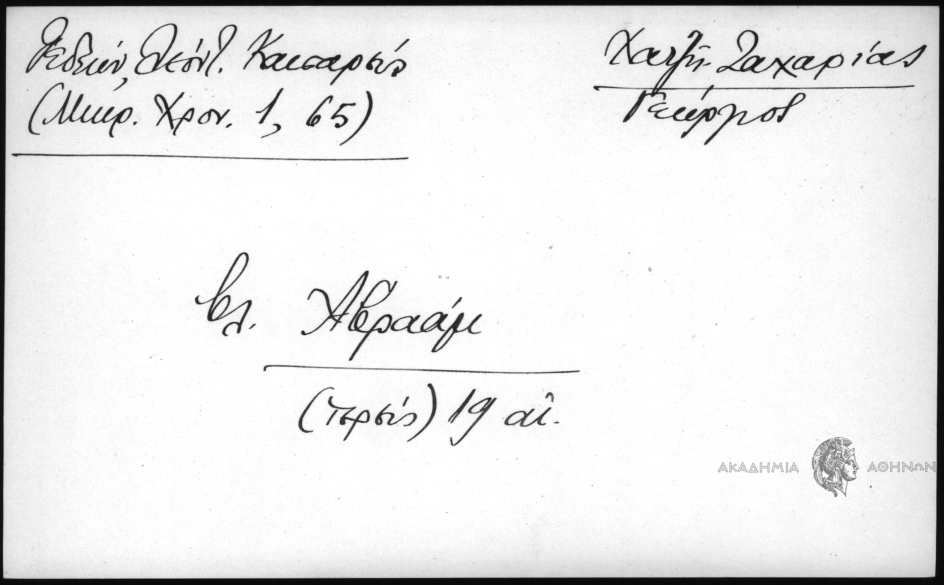 Γεδεών, Λεόντ. Καισαρεύς
(Μικρ. Χρον. 1, 65)
Χατζη-Ζαχαρίας
Γεώργιος
βλ. Ἀβραάμ
(ἱερεύς) 19 αἰ.
ΑΚΑΔΗΜΙΑ ΑΘΗΝΩΝ